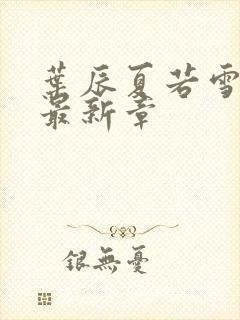 葉辰夏若雪
最新章
銀無憂